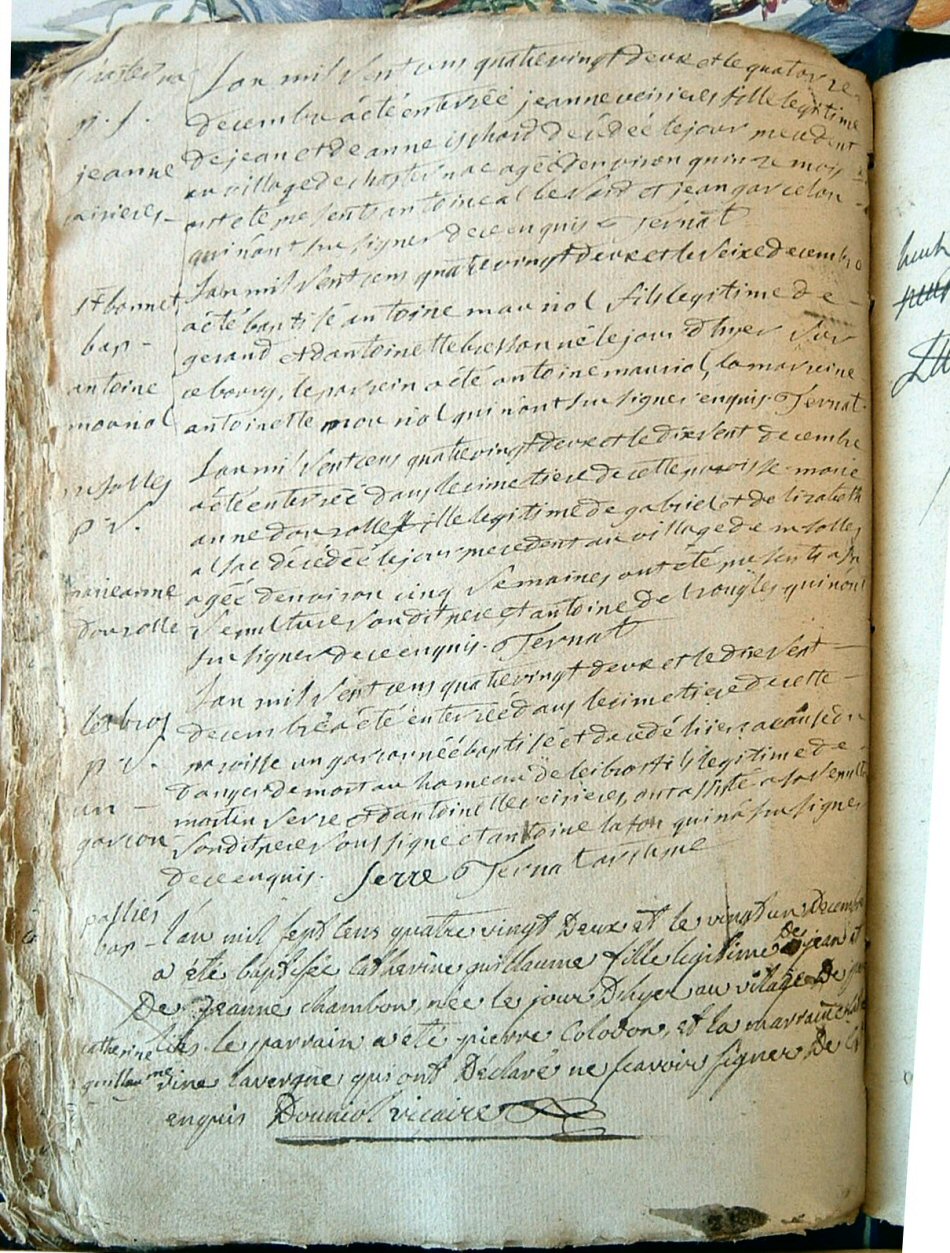 p. s.
jeanne
veirieres
L'an mil sept cens quatrevingt deux et le quatorze
decembre a été enterrée jeanne veirieres fille legitime
de jean et de anne ischard décédée le jour precedent
au village de chasternac agée denviron quinze mois
ont été presents antoine al et jean garcelon
qui n'ont sçu signer de ce enquis Ternat
st bonnet
bap -
antoine
mouriol
L'an mil sept cens quatrevingt deux et le seize decembre
a été baptisé antoine mouriol fils legitime de
gerand et d'antoinette besson né le jour d'hyer sur
ce bourg, le parrein a été antoine mouriol, la marreine
antoinette mouriol qui n'ont sçu signer enquis. Ternat.
p. s.
marieanne
dourolle
L'an mil sept cens quatrevingt deux et le dix sept decembre
a été enterrée dans le cimetiere de cette paroisse marie
anne dourolle fille legitime de gabriel et de lizabeth
décédée le jour precedent au village de
agée denviron cinq semaines ont été presents a sa
sepulture son dit pere et antoine qui n'ont
sçu signer de ce enquis. Ternat
leibros
p. s.
un -
garcon
L'an mil sept cens quatrevingt deux et le dix sept
decembre a été enterrée dans le cimetiere de cette
paroisse un garcon né baptisé et decedé hier a cause du
danger de mort au hameau de leibros fils legitime de
martin serre et d'antoinette veirieres, ont assisté a sa sepulture
son dit pere soussigné et antoine lafon qui n'a sçu signer
de ce enquis. Serre Ternat
palliés
bap -
catherine
guillaume
L'an mil sept cens quatre vingt Deux et le vingt un Decembre
a été baptisée Catherine guillaume fille legitime De jean et
De Jeanne chambon, née le jour D'hyer au village De
le parrain a été pierre Colodon, et la marraine
lavergne qui ont Déclaré ne scavoir signer De ce
enquis Douniol vicaire